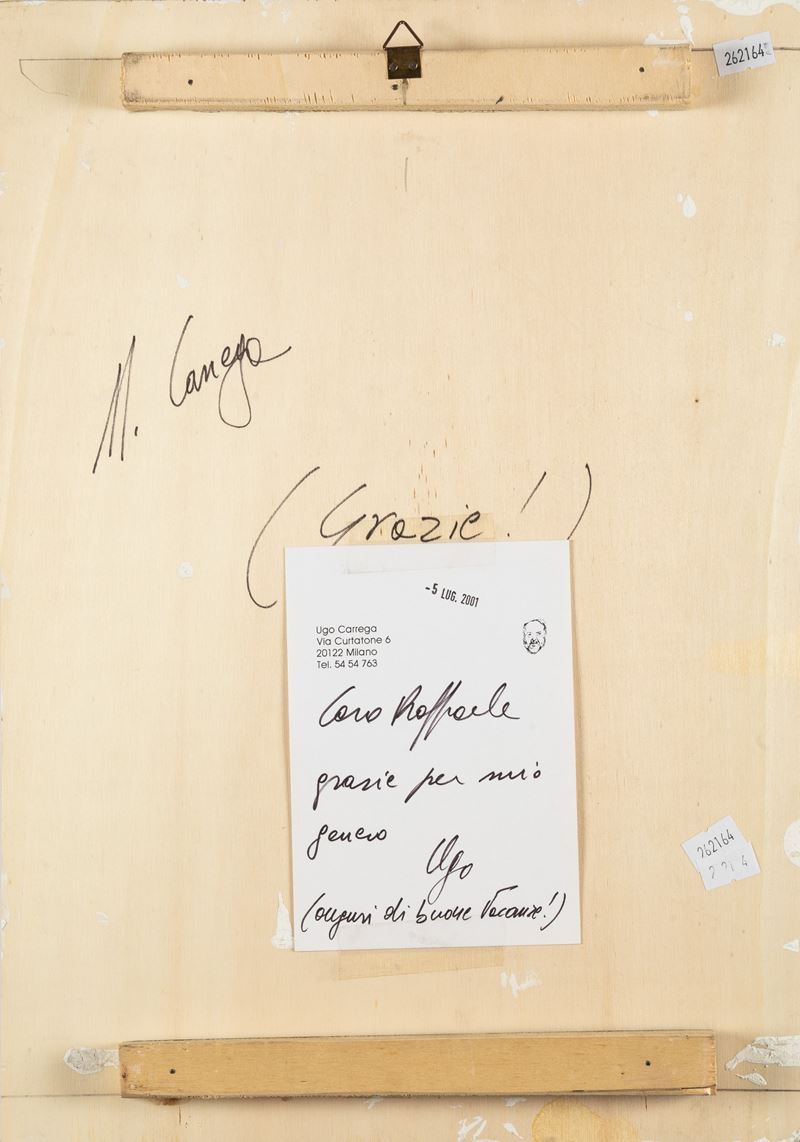 262164
U. Carrega
(Grazie!)
-5 LUG. 2001
Ugo Carrega
Via Curtatone 6
20122 Milano
Tel. 54 54 763
Caro Raffaele
grazie per mio
genero
Ugo
(auguri di buone Vacanze!)
262164